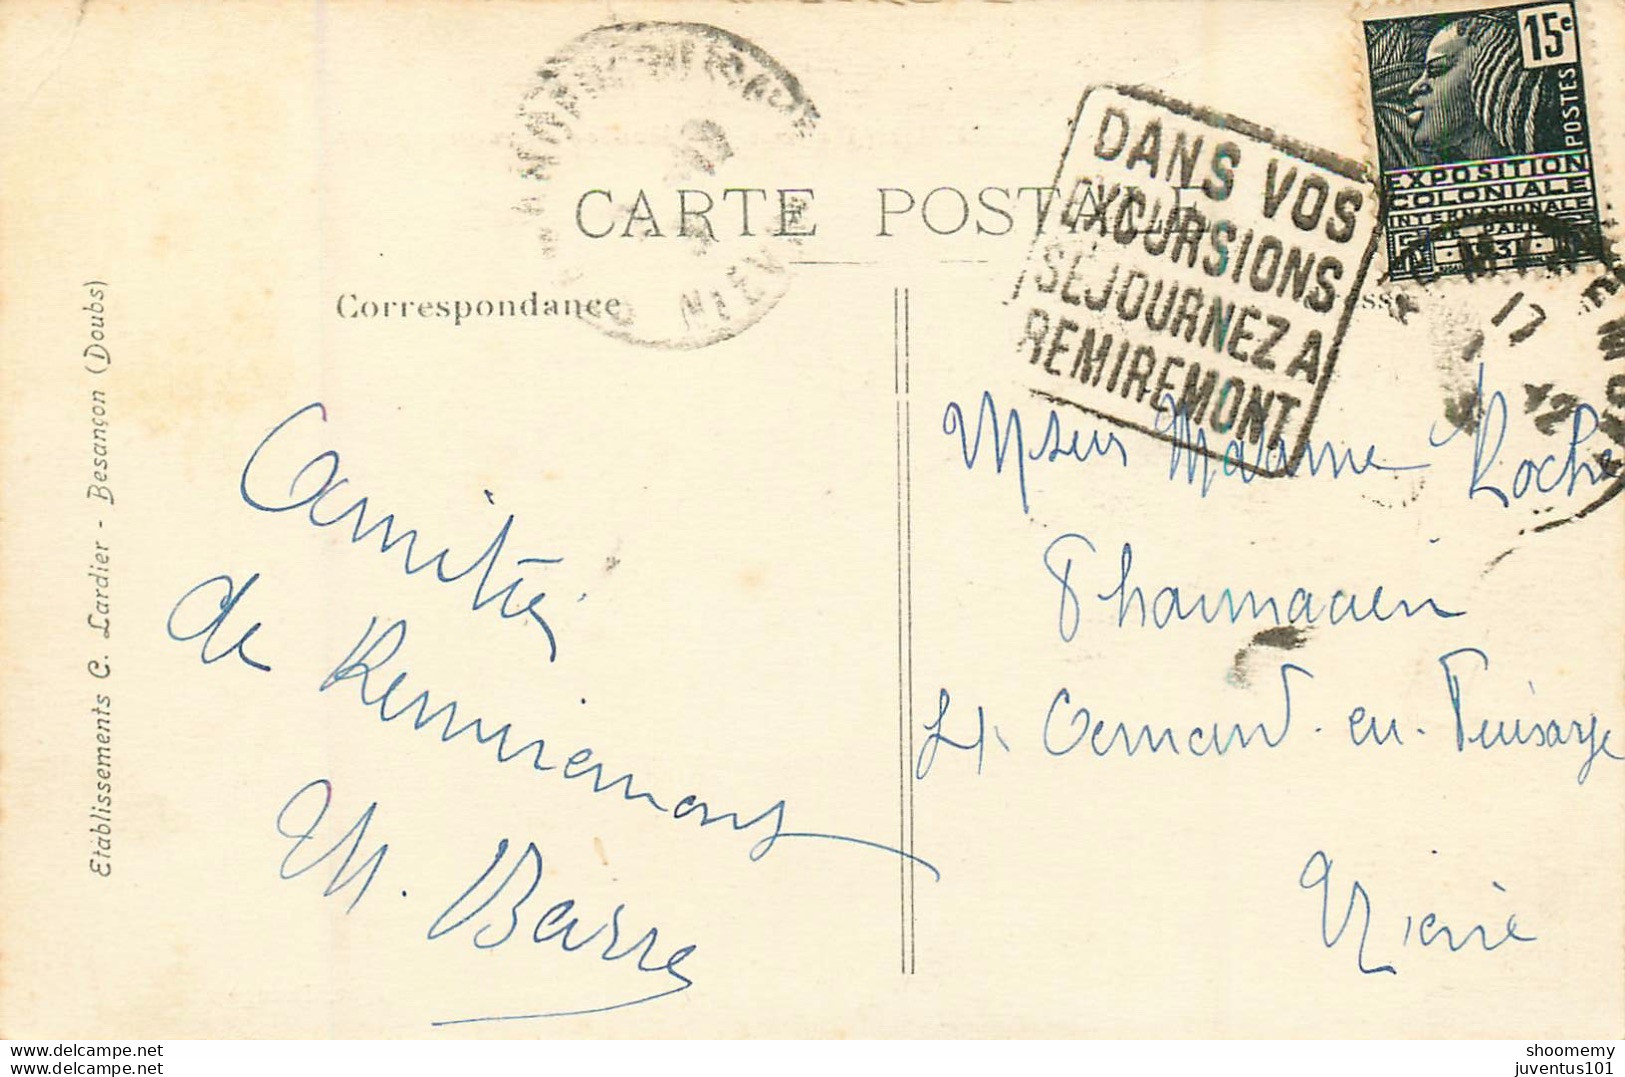 15c
POSTES
EXPOSITION
COLONIALE
INTERNATIONALE
PARIS
1931
DANS VOS
EXCURSIONS
SÉJOURNEZ A
REMIREMONT
17
NIEVRE
CARTE POSTALE
Correspondance
Etablissements C. Lardier - Besançon (Doubs)
Amitié
de Remiremont
M. Barre
Madame Roche
Pharmacien
St Amand-en-Puisaye
Nièvre
www.delcampe.net
shoomemy
juventus101